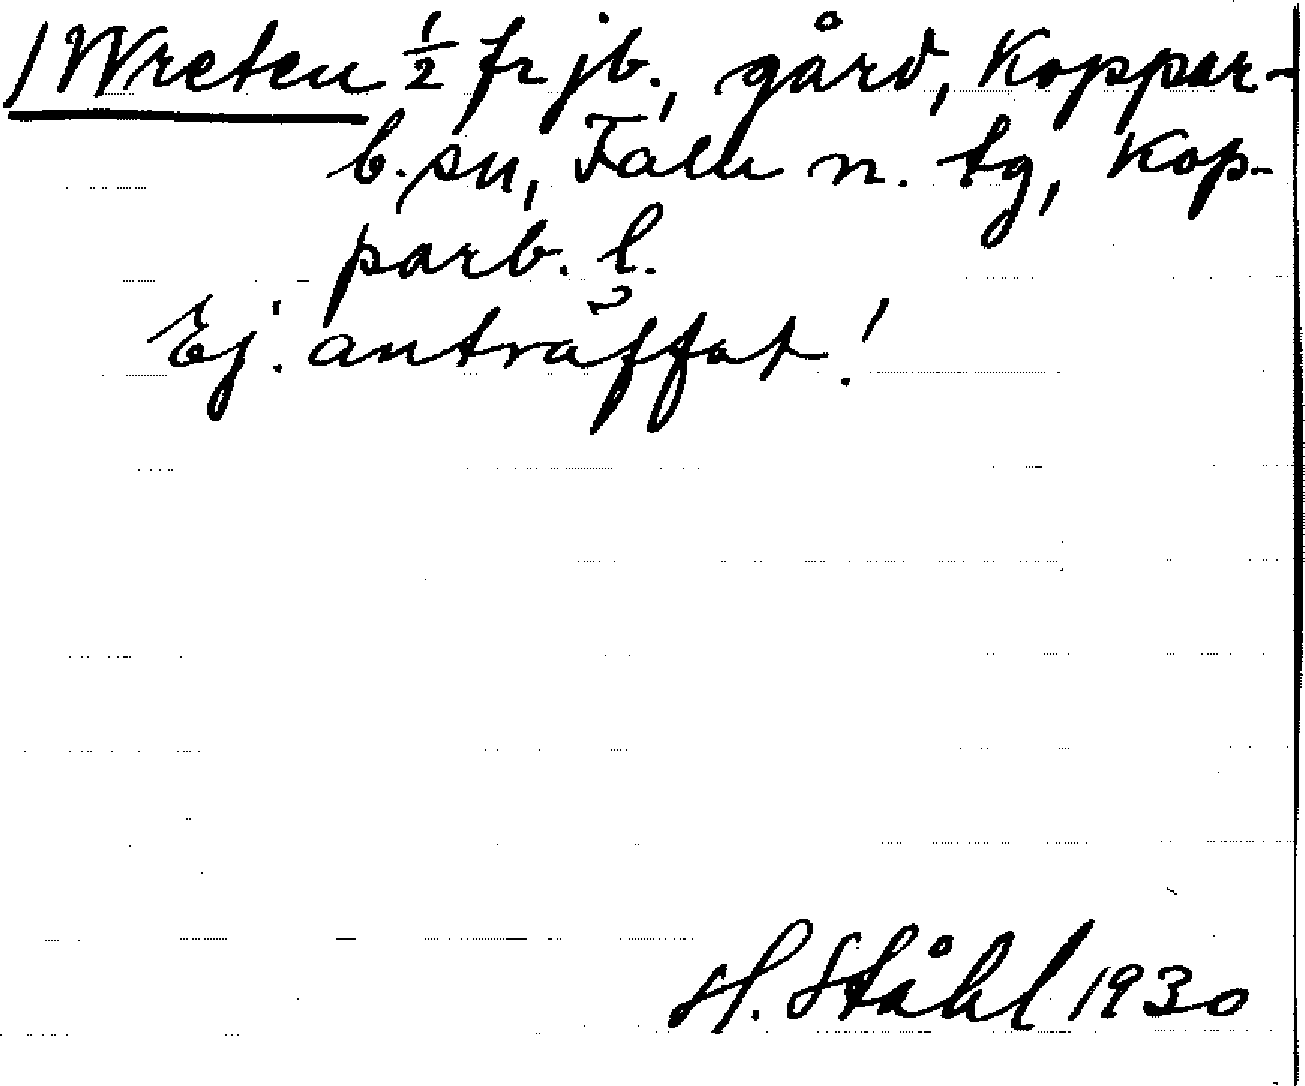 /Wreten ½ fr jb., gård, Koppar-
b. sn, Falu n. tg, Kop-
parb. l.
Ej. anträffat!
H. Ståhl 1930